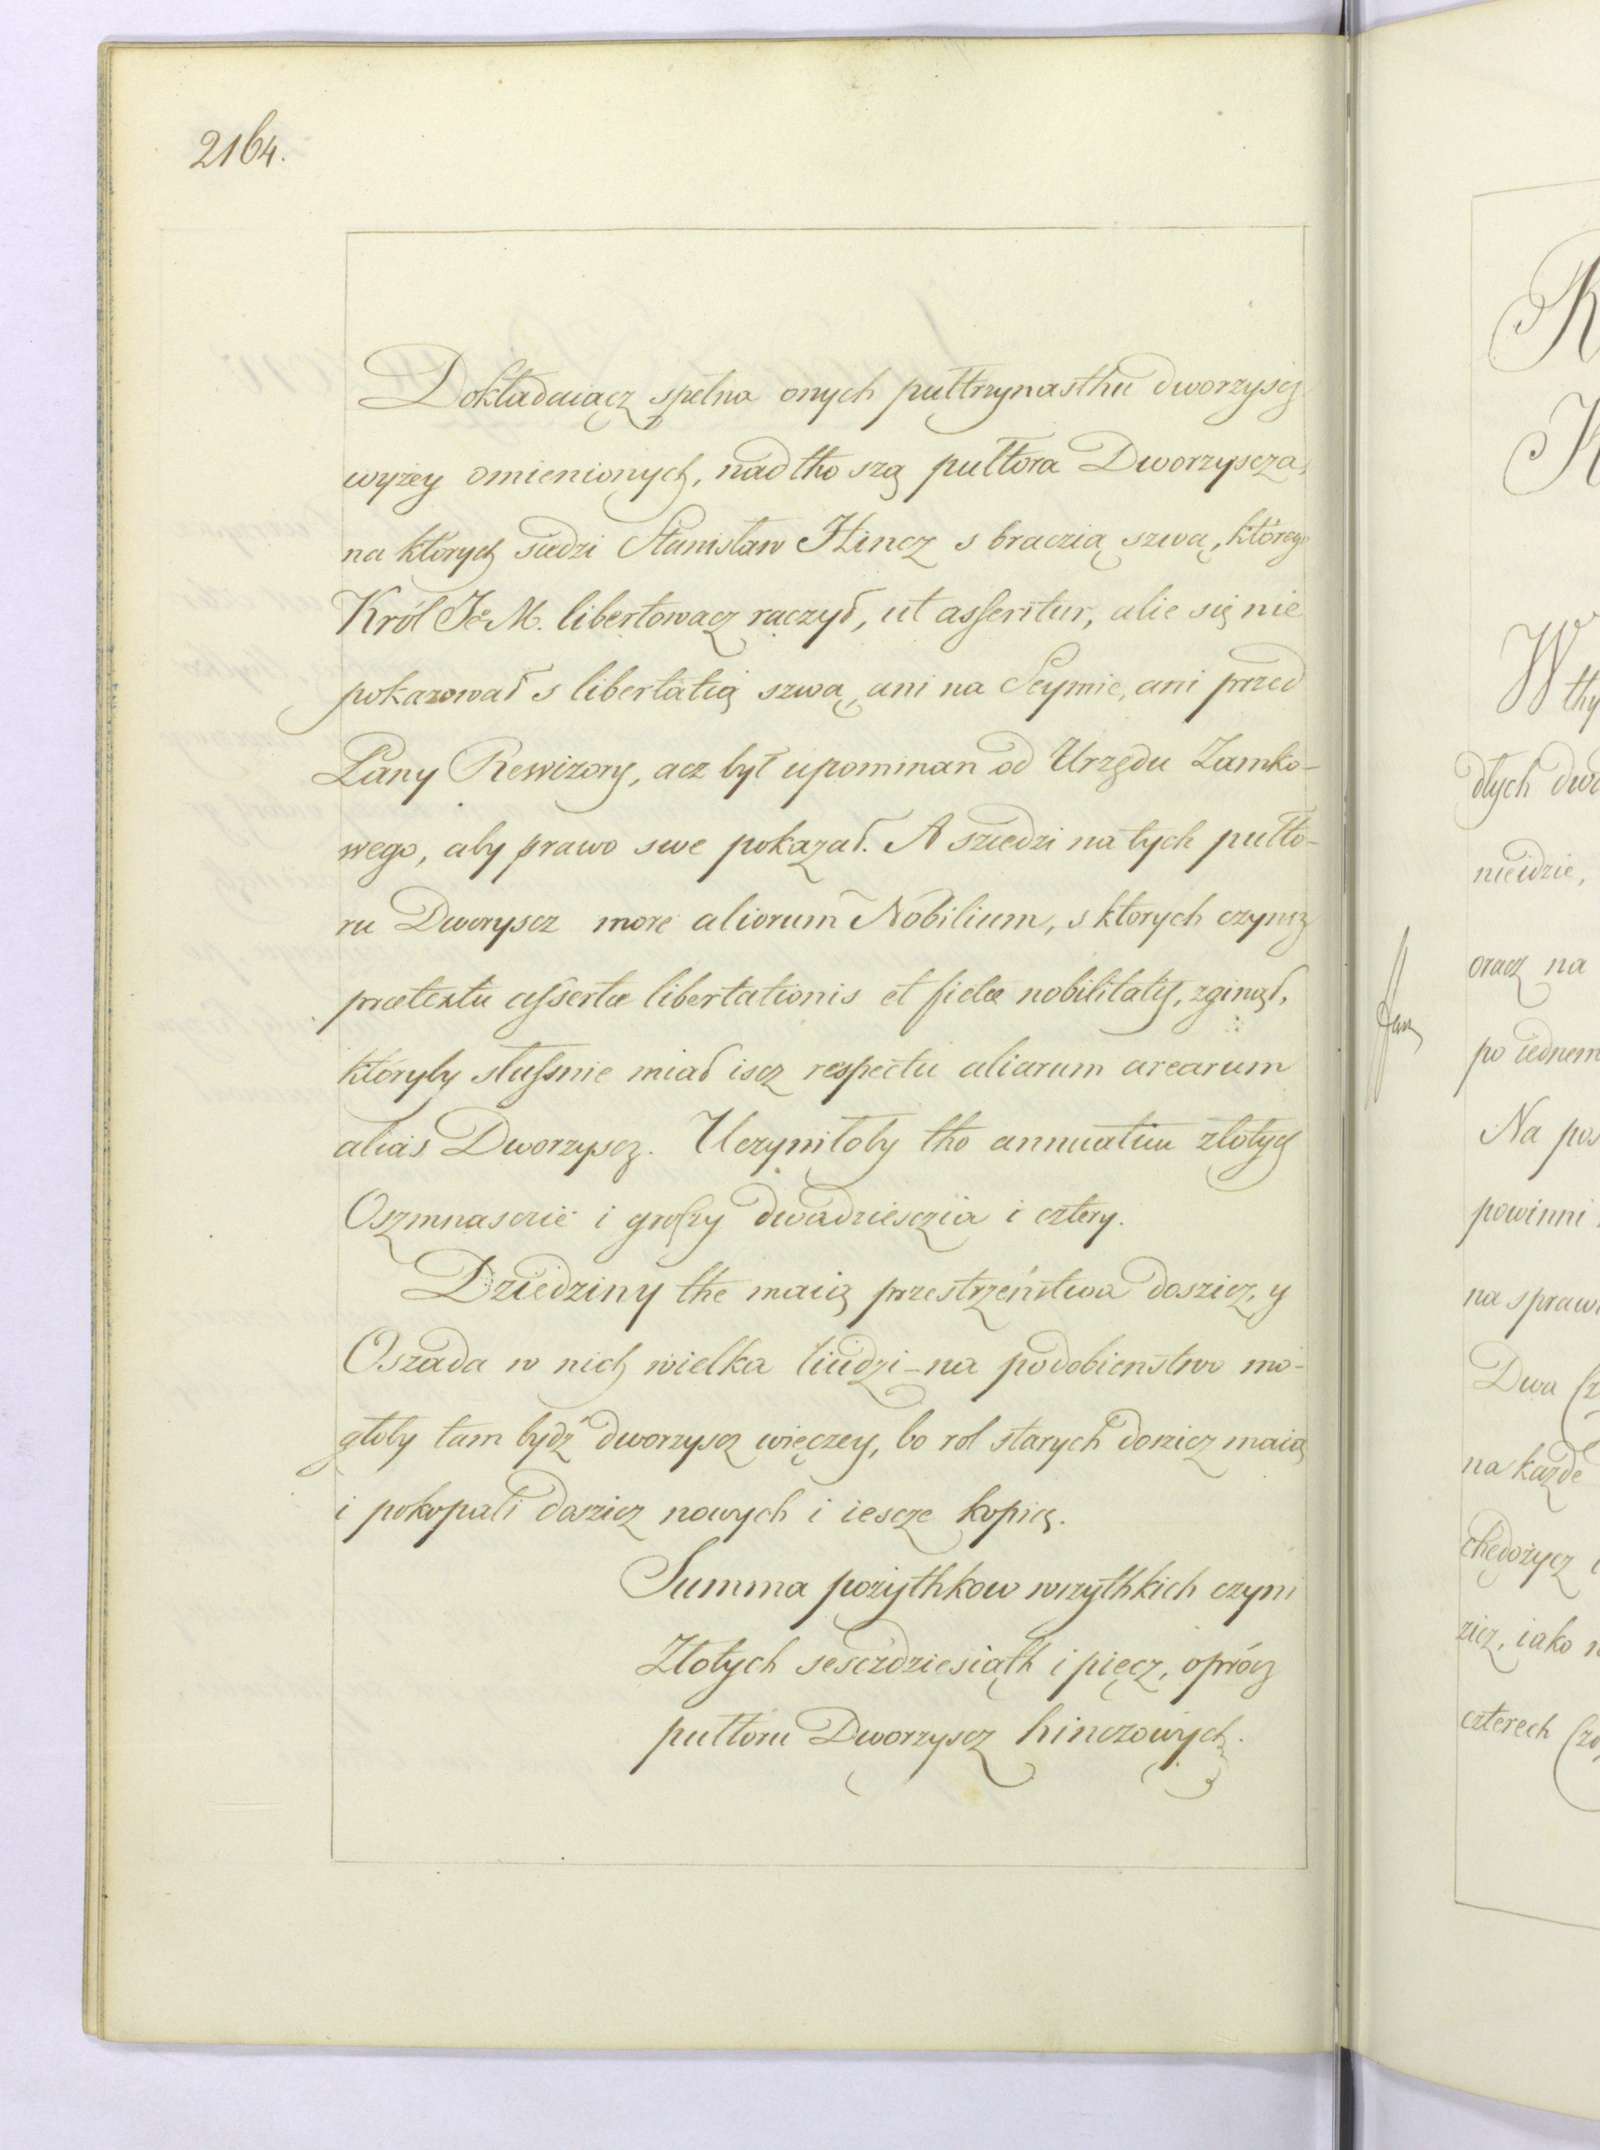 2164.
Dokładaiącz spełna onych pułtrzynasthu dworzyscz
wyżey omienionych, nadtho szą pułtora Dworzyscza,
na których siedzi Stanisław Hincz s braczią szwą, którego
Król Jo M. libertowacz raczył, ut asseritur, alie się nie
pokazował s libertatią szwą, ani na Seymie, ani przed
Pany Rewizory, acz był upominan od Urzędu Zamko-
wego, aby prawo swe pokazał. A sziedzi na tych pułto-
ru Dworyscz more aliorum Nobilium, s których czynsz
praetextu assertae libertationis et fictae nobilitatis, zginął,
któryby słussnie miał iscz respectu aliarum arearum
alias Dworzyscz. Uczyniłoby tho annuatim złotych
Oszmnasczie i groszy dwadziesczia i cztery.
Dziedziny the maią przestrzeństwa doszicz, y
Oszada w nich wielka liudzi - na podobienstwo mo-
głoby tam bydź dworzyscz więczey, bo rol starych doszicz maią
i pokopali doszicz nowych i iescze kopią.
Summa pożythkow wszythkich czyni
Złotych sesczdziesiąth i pięcz, oprócz
pułtoru Dworzyscz hinczowych.
R
K
W thy
dłych dwo
nieidzie,
oracz na
po iednem
Na pos
powinni
na sprawi
Dwa
na każde
chędożycz
zicz, iako
czterech